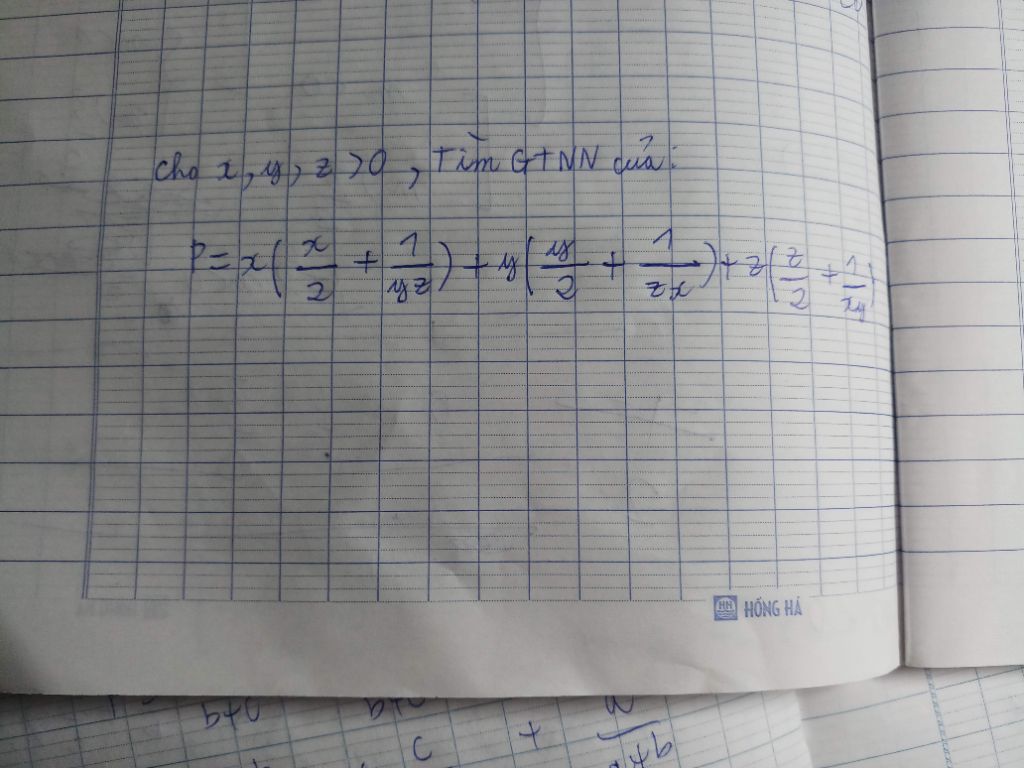 cho x, y, z > 0, Tìm GTNN của:
P = x(x/2 + 1/yz) + y(y/2 + 1/zx) + z(z/2 + 1/xy)
HH HỒNG HÀ